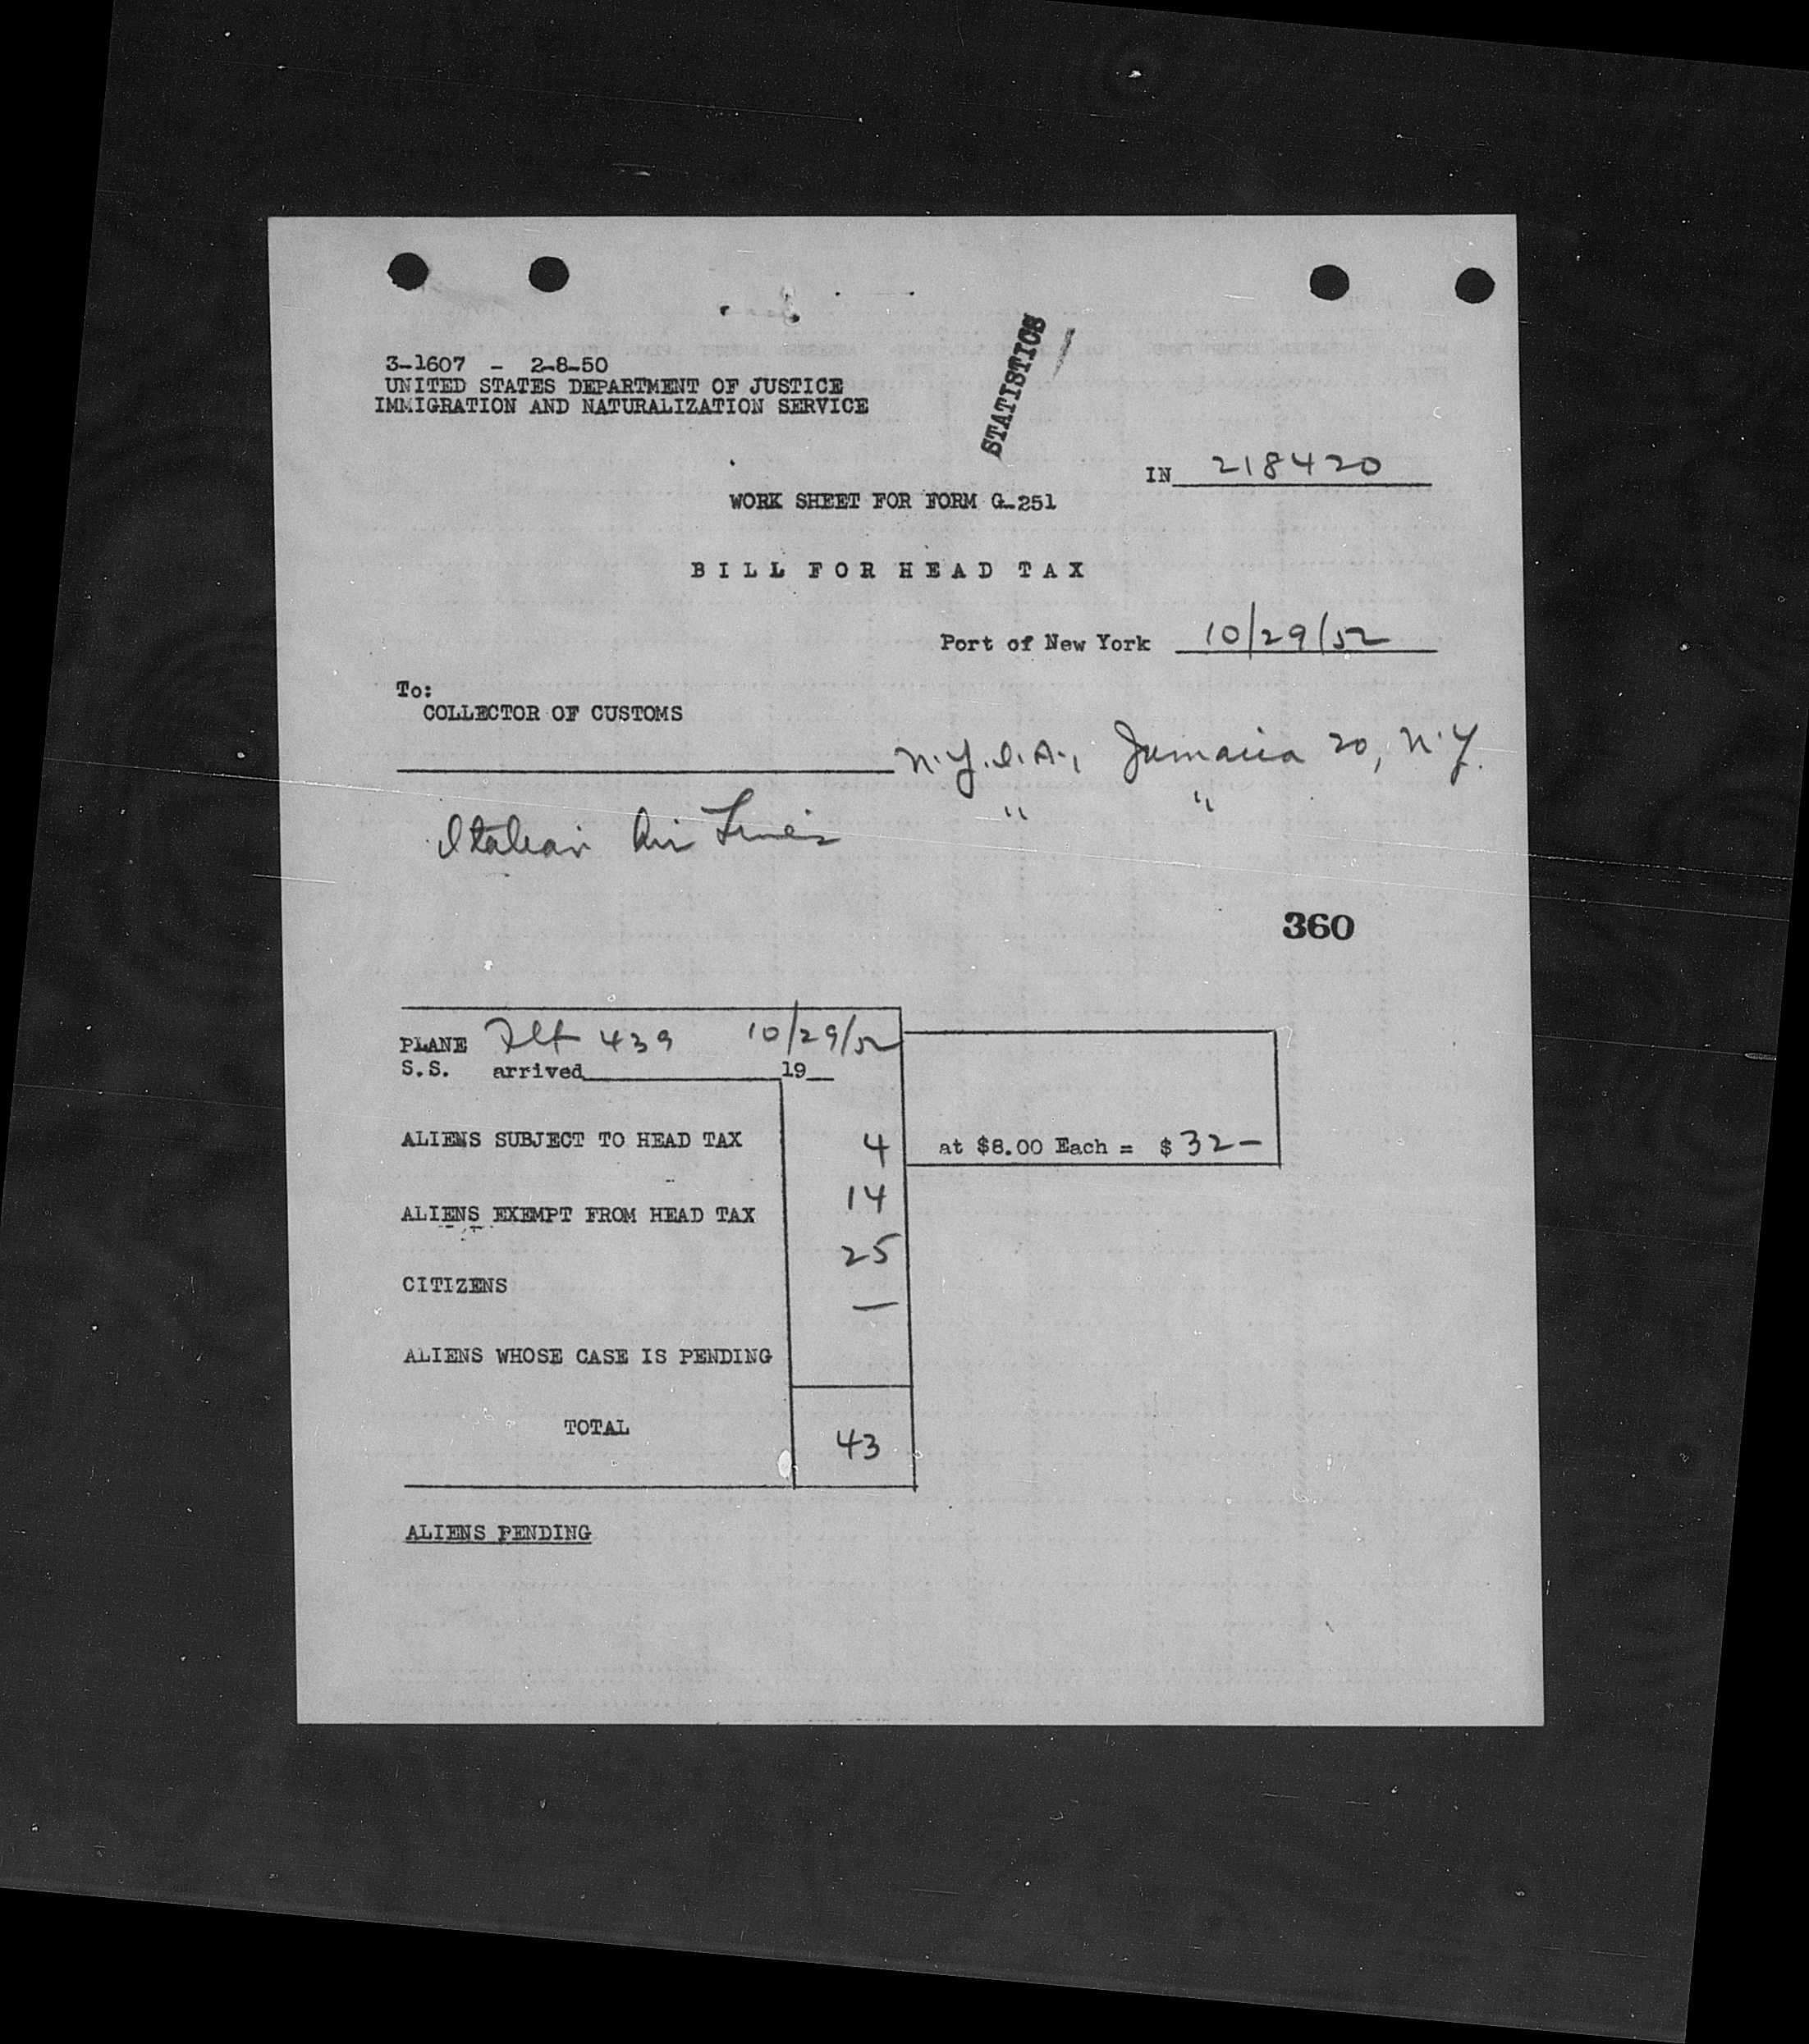 STATISTICS
3-1607 - 2-8-50
UNITED STATES DEPARTMENT OF JUSTICE
IMMIGRATION AND NATURALIZATION SERVICE
IN 218420
WORK SHEET FOR FORM G-251
BILL FOR HEAD TAX
Port of New York 10/29/52
To:
COLLECTOR OF CUSTOMS
N.Y.I.A., Jamaica 20, N.Y.
Italian Air Lines " "
360
PLANE Flt 439 10/29/52
S.S. arrived 19
ALIENS SUBJECT TO HEAD TAX 4 at $8.00 Each = $ 32-
ALIENS EXEMPT FROM HEAD TAX 14
CITIZENS 25
ALIENS WHOSE CASE IS PENDING —
TOTAL 43
ALIENS PENDING